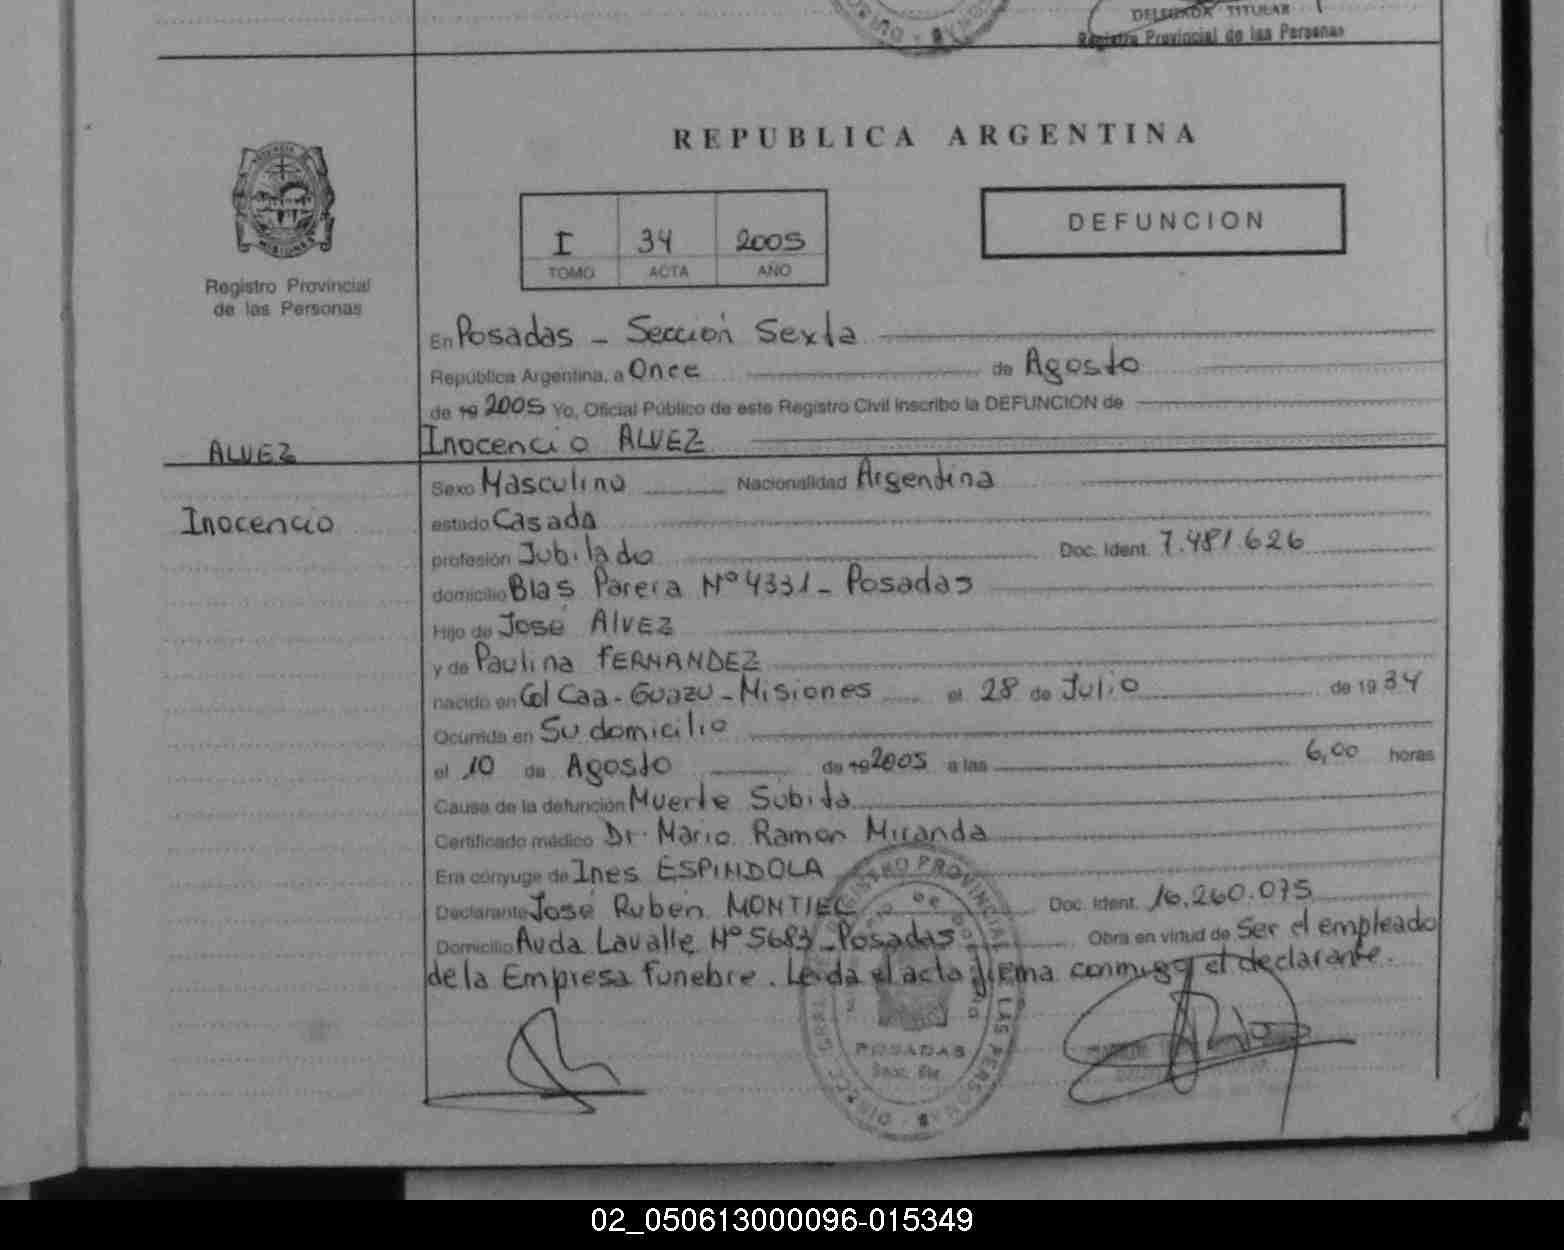 DELEGADA TITULAR
Registro Provincial de las Personas
REPUBLICA ARGENTINA
I 34 2005
TOMO ACTA AÑO
DEFUNCION
Registro Provincial
de las Personas
En Posadas - Sección Sexta
República Argentina, a Once de Agosto
de 19 2005 Yo, Oficial Público de este Registro Civil inscribo la DEFUNCION de
ALVEZ Inocencio ALVEZ
Sexo Masculino Nacionalidad Argentina
Inocencio estado Casado
profesión Jubilado Doc. Ident. 7.481.626
domicilio Blas Parera Nº 4331 - Posadas
Hijo de José Alvez
y de Paulina FERNANDEZ
nacido en Col Caa-Guazu - Misiones el 28 de Julio de 19 34
Ocurrida en Su domicilio
el 10 de Agosto de 19 2005 a las 6,00 horas
Causa de la defunción Muerte Subita
Certificado médico Dr. Mario Ramon Miranda
Era cónyuge de Ines ESPINDOLA
Declarante José Ruben MONTIEL Doc. Ident. 16.260.075
Domicilio Avda Lavalle Nº 5683 - Posadas Obra en virtud de Ser el empleado
de la Empresa Funebre. Leida el acta firma conmigo el declarante.
REGISTRO PROVINCIAL DE LAS PERSONAS
POSADAS
Secc. 6ta
02_050613000096-015349